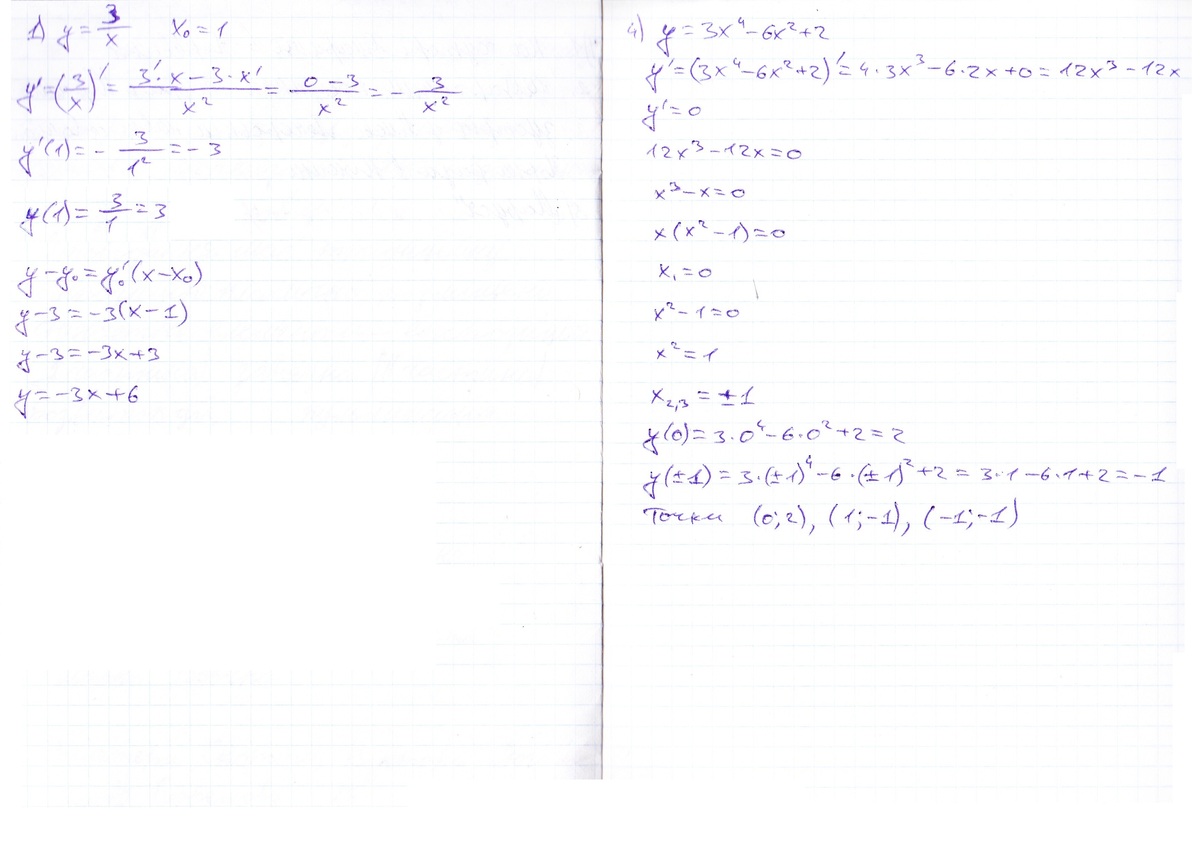 1) y = 3/x x₀ = 1
y' = (3/x)' = (3'·x − 3·x')/x² = (0 − 3)/x² = − 3/x²
y'(1) = − 3/1² = − 3
y(1) = 3/1 = 3
y − y₀ = y₀'(x − x₀)
y − 3 = −3(x − 1)
y − 3 = −3x + 3
y = −3x + 6
4) y = 3x⁴ − 6x² + 2
y' = (3x⁴ − 6x² + 2)' = 4·3x³ − 6·2x + 0 = 12x³ − 12x
y' = 0
12x³ − 12x = 0
x³ − x = 0
x(x² − 1) = 0
x₁ = 0
x² − 1 = 0
x² = 1
x₂,₃ = ±1
y(0) = 3·0⁴ − 6·0² + 2 = 2
y(±1) = 3·(±1)⁴ − 6·(±1)² + 2 = 3·1 − 6·1 + 2 = −1
Точки (0;2), (1;−1), (−1;−1)